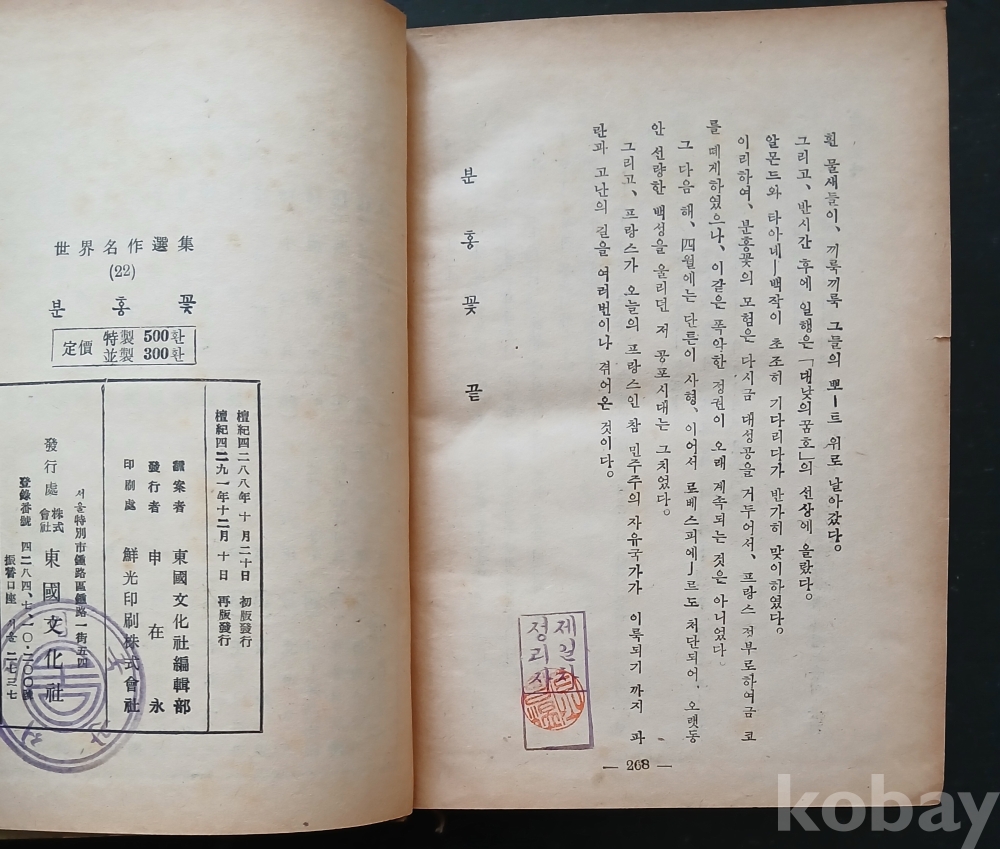 흰 물새들이, 끼룩끼룩 그들의 뽀ー트 위로 날아갔다.
그리고, 반시간 후에 일행은 「대낮의꿈호」의 선상에 올랐다.
알몬드와 타아네ー백작이 초조히 기다리다가 반가히 맞이하였다.
이리하여, 분홍꽃의 모험은 다시금 대성공을 거두어서, 프랑스 정부로하여금 코
를 떼게하였으나, 이같은 폭악한 정권이 오래 계속되는 것은 아니었다.
그 다음 해, 四월에는 단튼이 사형, 이어서 로베스피에ー르도 처단되어, 오랫동
안 선량한 백성을 울리던 저 공포시대는 그치었다.
그리고, 프랑스가 오늘의 프랑스인 참 민주주의 자유국가가 이룩되기 까지 파
란과 고난의 길을 여러번이나 겪어온 것이다.
분홍꽃 끝
제일한
정괴사
— 268 —
世界名作選集
(22)
분홍꽃
定價 特製 500환
並製 300환
檀紀四二八八年 十月二十日 初版發行
檀紀四二九一年十二月 十日 再版發行
飜案者 東國文化社編輯部
發行者 申在永
印刷處 鮮光印刷株式會社
서울特別市鍾路區鍾路一街五四
發行處 株式會社 東國文化社
登錄番號 四二八四.七.一〇.二〇〇號
振替口座 서울
kobay